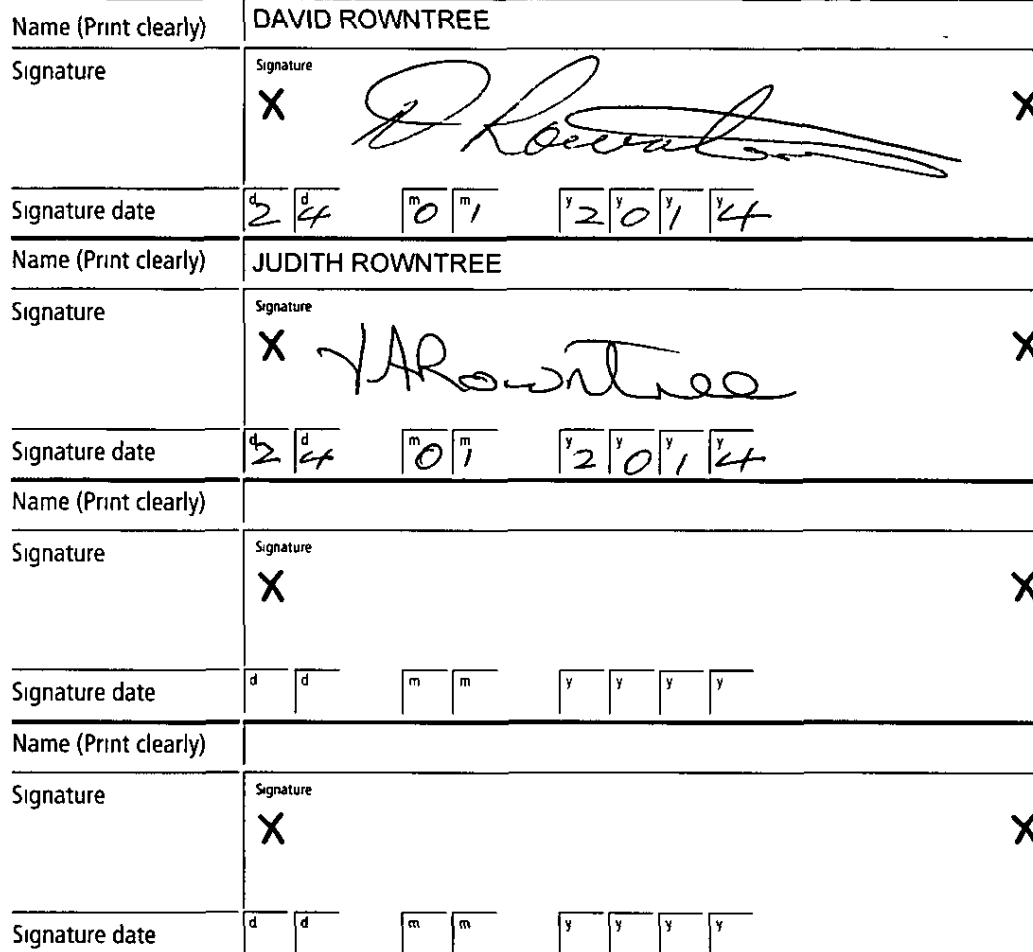 Name (Print clearly) DAVID ROWNTREE
Signature Signature
X D Rowntree X
Signature date d 2 d 4 m 0 m 1 y 2 y 0 y 1 y 4
Name (Print clearly) JUDITH ROWNTREE
Signature Signature
X JARowntree X
Signature date d 2 d 4 m 0 m 1 y 2 y 0 y 1 y 4
Name (Print clearly)
Signature Signature
X X
Signature date d d m m y y y y
Name (Print clearly)
Signature Signature
X X
Signature date d d m m y y y y